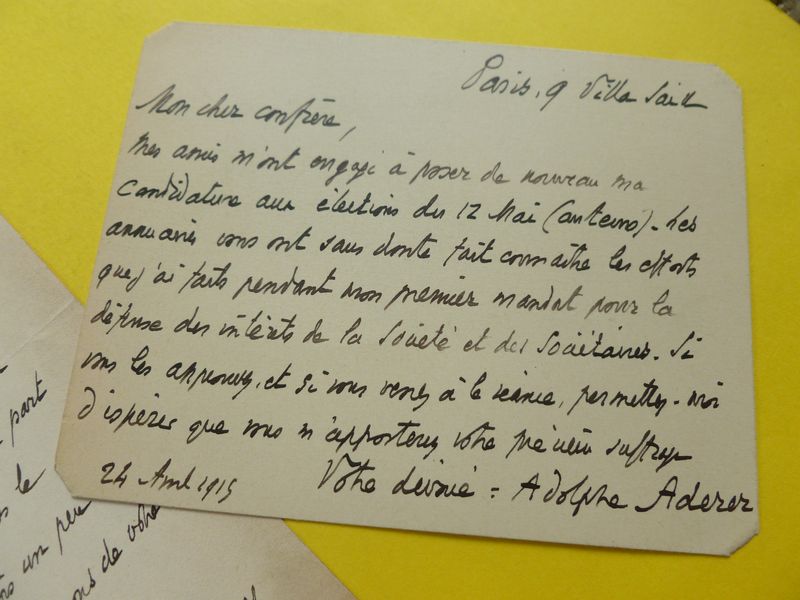 Paris, 9 Villa Said
Mon cher confrère,
Mes amis m'ont engagé à poser de nouveau ma
candidature aux élections du 12 Mai (auteurs). Les
annuaires vous ont sans doute fait connaître les efforts
que j'ai faits pendant mon premier mandat pour la
défense des intérêts de la Société et des Sociétaires. Si
vous les approuvez, et si vous venez à la séance, permettez-moi
d'espérer que vous m'apporterez votre précieux suffrage
24 Avril 1915
Votre dévoué : Adolphe Aderer
part
le
un peu
de votre